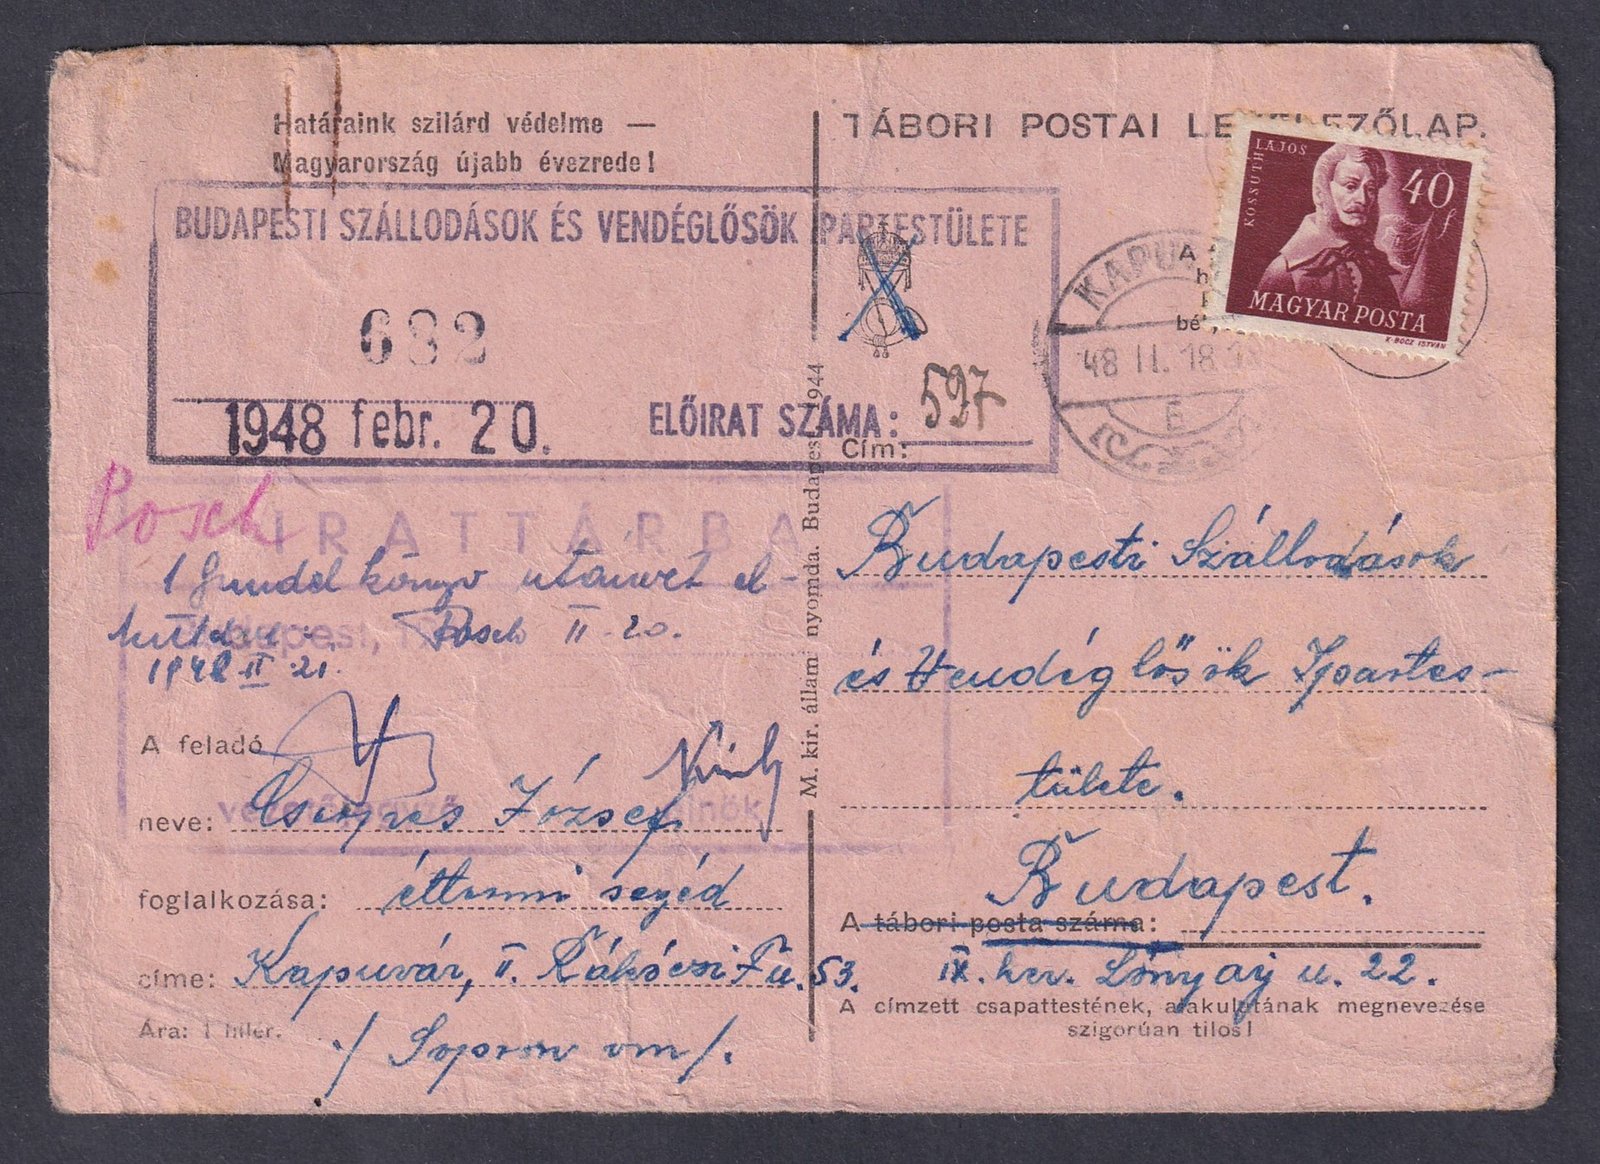 Határaink szilárd védelme —
Magyarország újabb évezrede!
BUDAPESTI SZÁLLODÁSOK ÉS VENDÉGLŐSÖK IPARTESTÜLETE
682
1948 febr. 20.
ELŐIRAT SZÁMA: 597
Posch
IRATTÁRBA
1 Gundel könyv utánvét el-
Budapest, 19
Posch II. 20.
1948 II 21.
A feladó
neve: Cserpes József
foglalkozása: éttermi segéd
címe: Kapuvár, II. Rákóczi F u. 53.
Ára: 1 fillér.
/ Sopron vm /.
M. kir. állam nyomda. Budapest 1944
TÁBORI POSTAI LEVELEZŐLAP.
KOSSUTH LAJOS
40 f
MAGYAR POSTA
K-BOCZ ISTVÁN
A
bé
KAPU
48 II. 18. 18
E
Cím:
Budapesti Szállodások
és Vendéglősök Ipartes-
tülete.
Budapest.
A tábori posta száma:
IX. ker. Lónyay u. 22.
A címzett csapattestének, alakulatának megnevezése
szigorúan tilos!